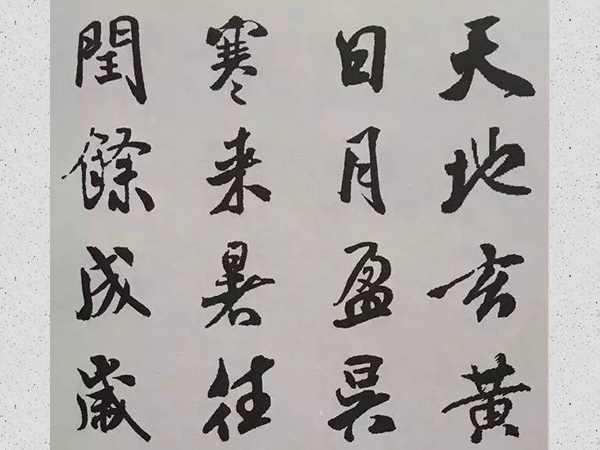 天地玄黄
日月盈昃
寒来暑往
閏餘成歲